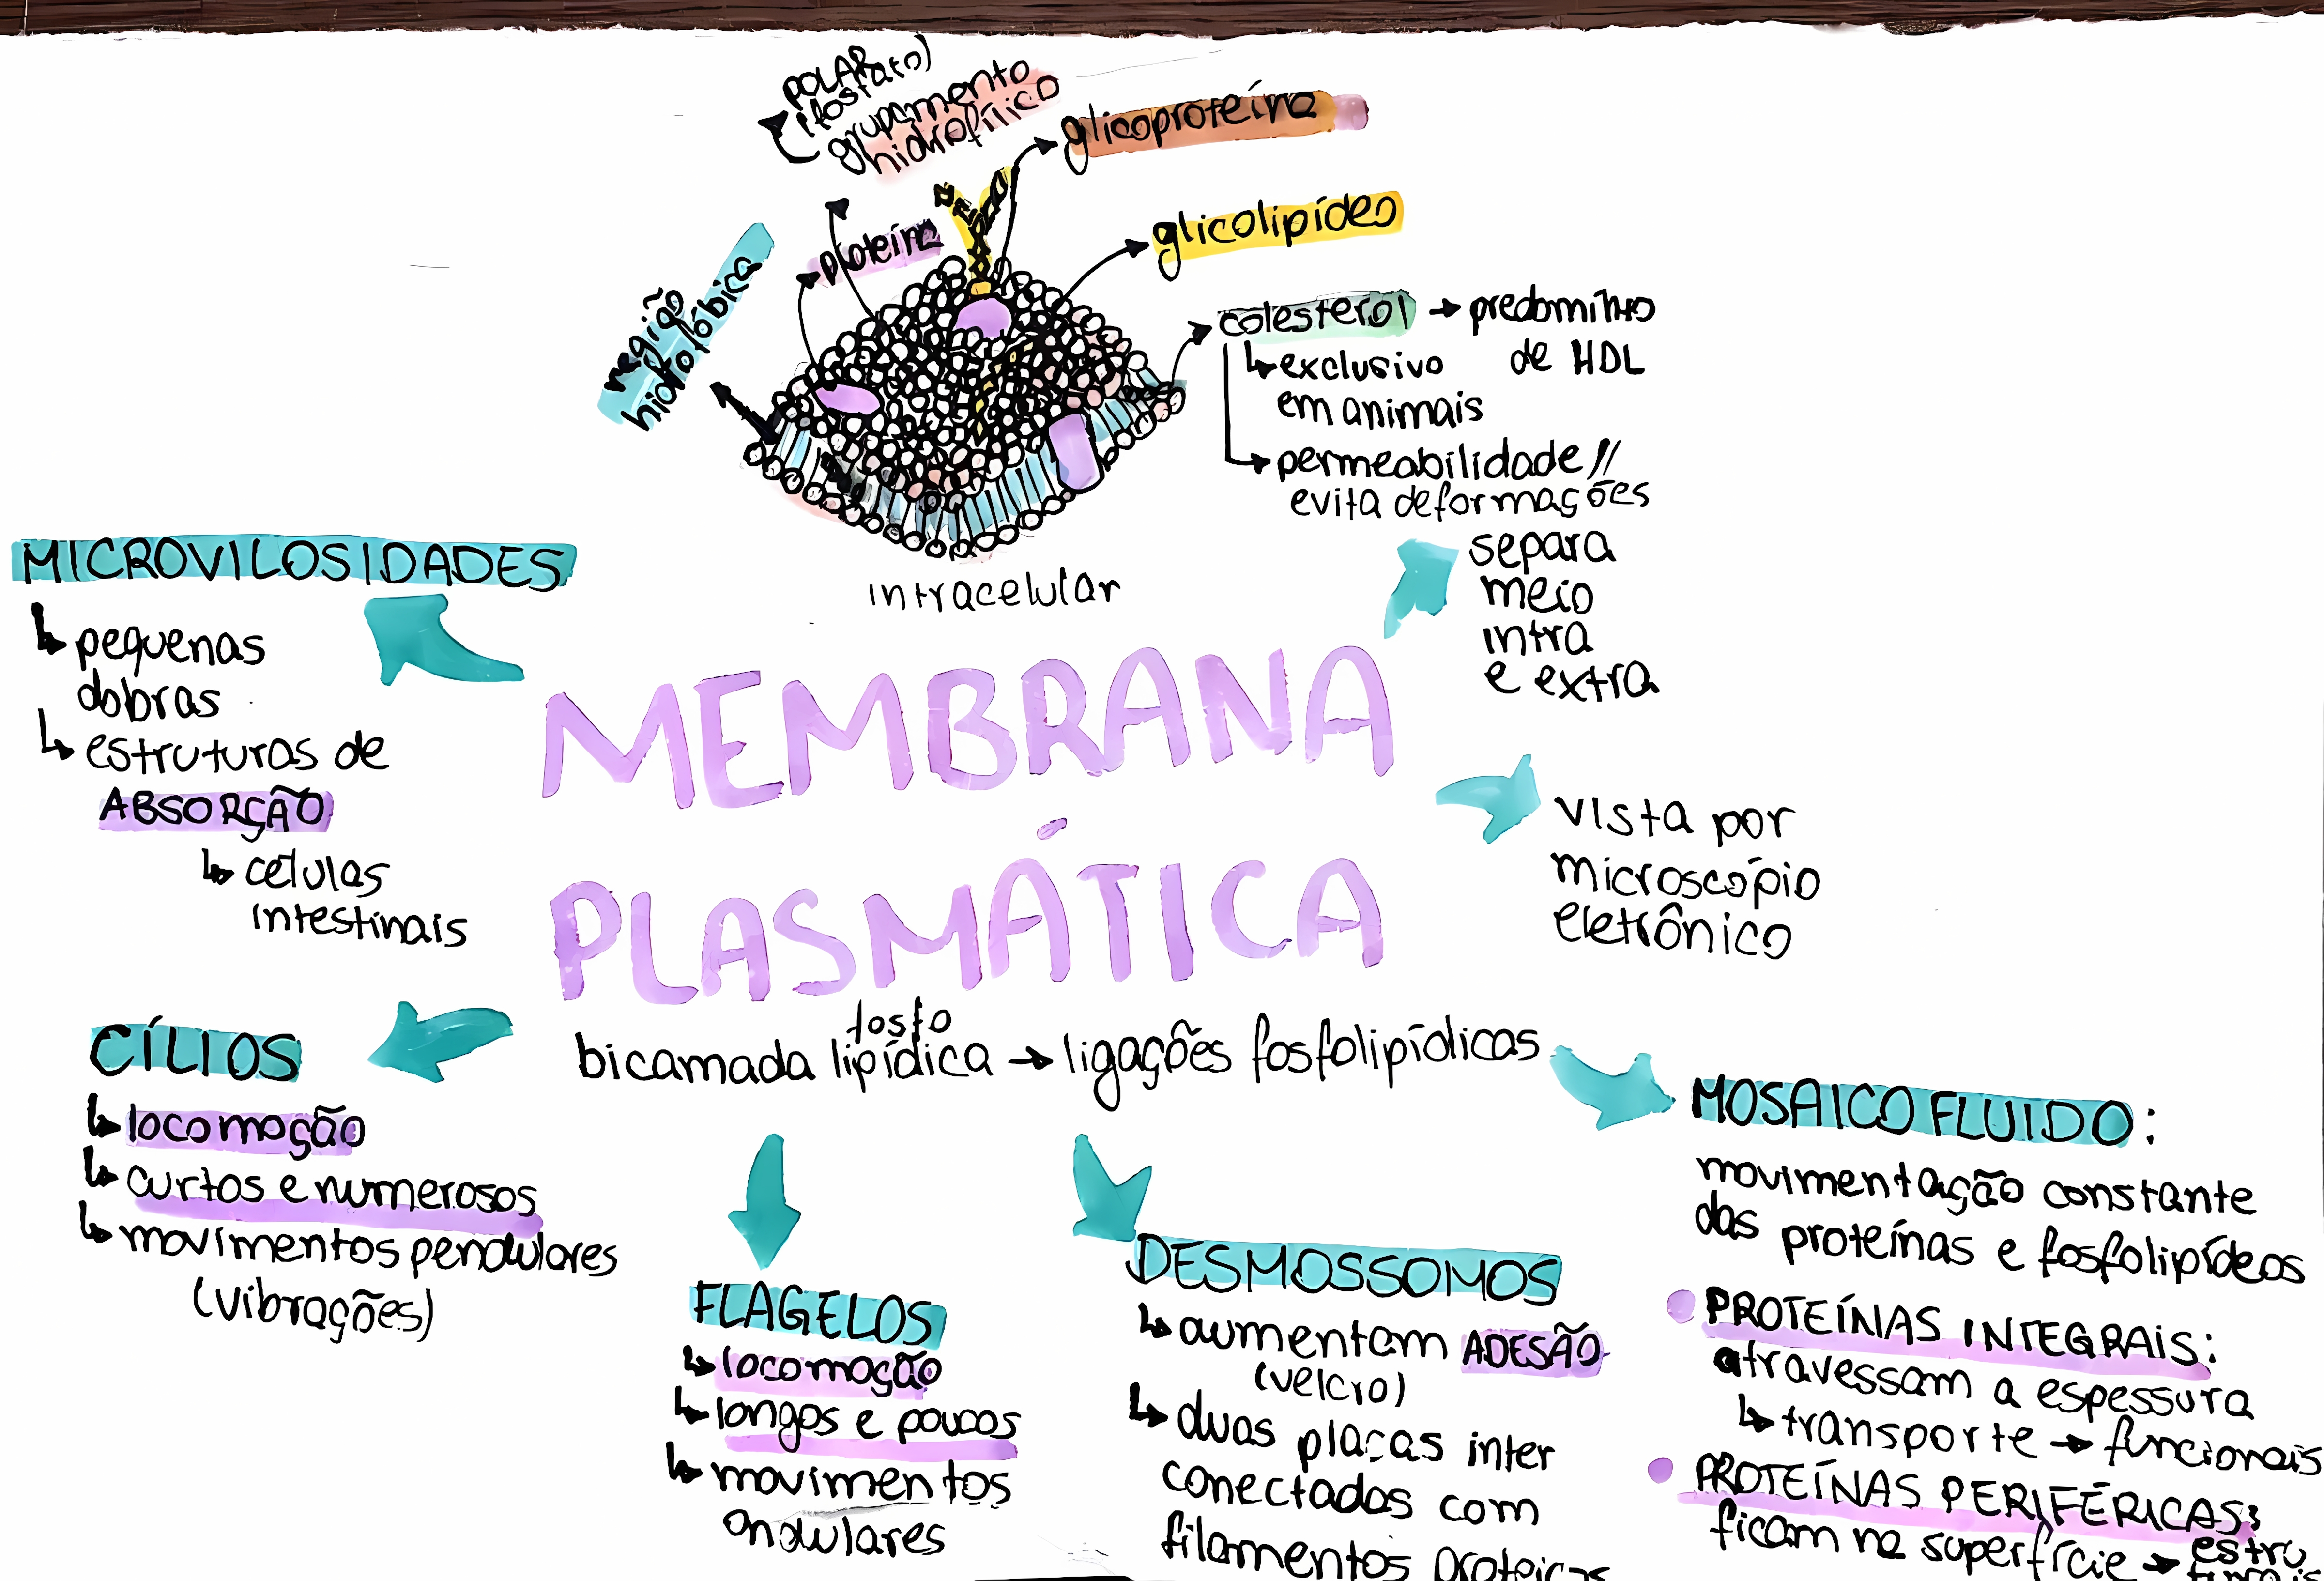 POLAR
(fosfato)
grupamento
hidrofílico
glicoproteína
glicolipídeo
proteína
região
hidrofóbica
colesterol → predomínio
de HDL
exclusivo
em animais
permeabilidade //
evita deformações
intracelular
separa
meio
intra
e extra
MICROVILOSIDADES
pequenas
dobras
estruturas de
ABSORÇÃO
células
intestinais
MEMBRANA
PLASMÁTICA
vista por
microscópio
eletrônico
fosfo
bicamada lipídica → ligações fosfolipídicas
CÍLIOS
locomoção
curtos e numerosos
movimentos pendulares
(vibrações)
FLAGELOS
locomoção
longos e poucos
movimentos
ondulares
DESMOSSOMOS
aumentam ADESÃO
(velcro)
duas placas inter
conectadas com
filamentos
MOSAICO FLUIDO:
movimentação constante
das proteínas e fosfolipídeos
PROTEÍNAS INTEGRAIS:
atravessam a espessura
transporte → funcionais
PROTEÍNAS PERIFÉRICAS:
ficam na superfície → estru